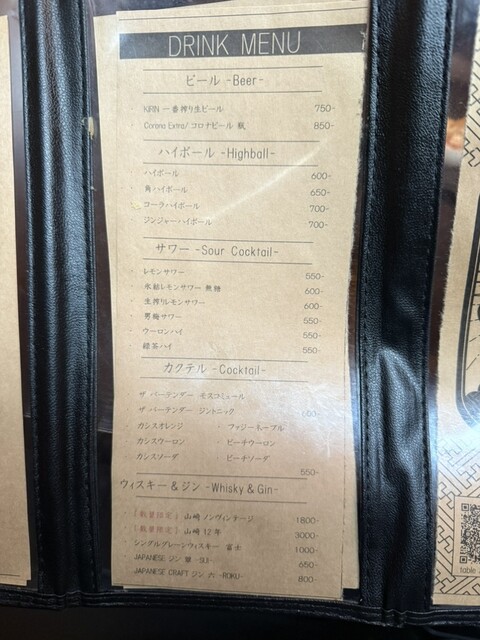 DRINK MENU
ビール -Beer-
KIRIN 一番搾り生ビール 750-
Corona Extra/コロナビール 瓶 850-
ハイボール -Highball-
ハイボール 600-
角ハイボール 650-
コーラハイボール 700-
ジンジャーハイボール 700-
サワー -Sour Cocktail-
レモンサワー 550-
氷結レモンサワー 無糖 600-
生搾りレモンサワー 600-
男梅サワー 550-
ウーロンハイ 550-
緑茶ハイ 550-
カクテル -Cocktail-
ザ バーテンダー モスコミュール
ザ バーテンダー ジントニック 600-
・カシスオレンジ ・ファジーネーブル
・カシスウーロン ・ピーチウーロン
・カシスソーダ ・ピーチソーダ
550-
ウィスキー＆ジン -Whisky & Gin-
【数量限定】山崎 ノンヴィンテージ 1800-
【数量限定】山崎 12年 3000-
シングルグレーンウィスキー 富士 1000-
JAPANESE ジン 翠 -SUI- 650-
JAPANESE CRAFT ジン 六 -ROKU- 800-
table